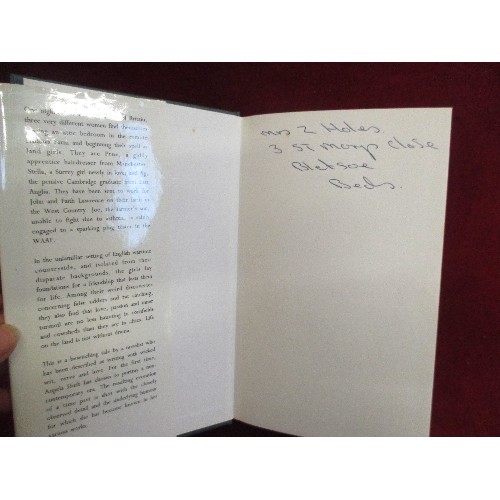 three very different women find themselves
sharing an attic bedroom in the remote
land girls. They are Prue, a
apprentice hairdresser from Manchester,
Stella, a Surrey girl newly in love; and Ag,
the pensive Cambridge graduate from East
Anglia. They have been sent to work for
John and Faith Lawrence on their farm in
the West Country. Joe, the farmer's son,
unable to fight due to asthma, is
engaged to a sparking plug tester in the
WAAF.
In the unfamiliar setting of English wartime
countryside, and isolated from their
disparate backgrounds, the girls lay
foundations for a friendship that lasts them
for life. Among their weird discoveries
concerning false udders and rat catching,
they also find that love, passion and inner
turmoil are no less haunting in
and cowsheds than they are in cities. Life
on the land is not without drama.
This is a bewitching tale by a novelist who
has been described as writing with
wit, verve and love. For the first time,
Angela Huth has chosen to portray a non-
contemporary era. The resulting evocation
of a time past is shot with the closely
observed detail and the underlying humour
for which she has become known in her
various works.
Mrs Z Hales.
3 ST Marys Close
Bletsoe
Beds.